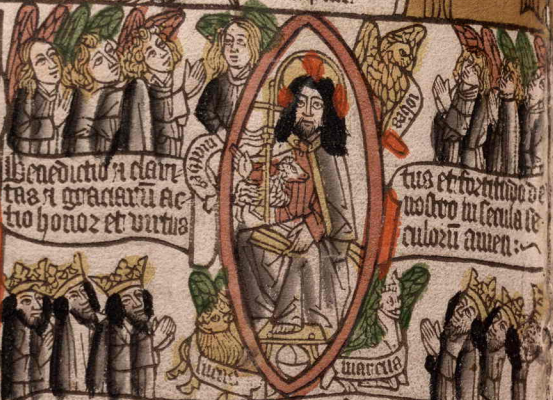 Benedictio ⁊ clari
tas ⁊ graciarũ ac
tio honor et virtus
tus et fortitudo de
nostro in secula se
culorũ amen:~
lucas
marcus